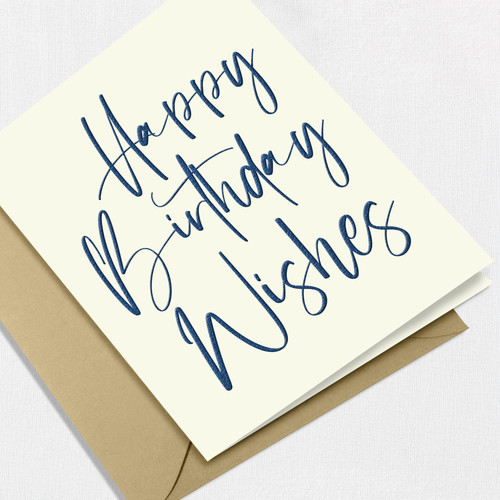 Happy
Birthday
Wishes